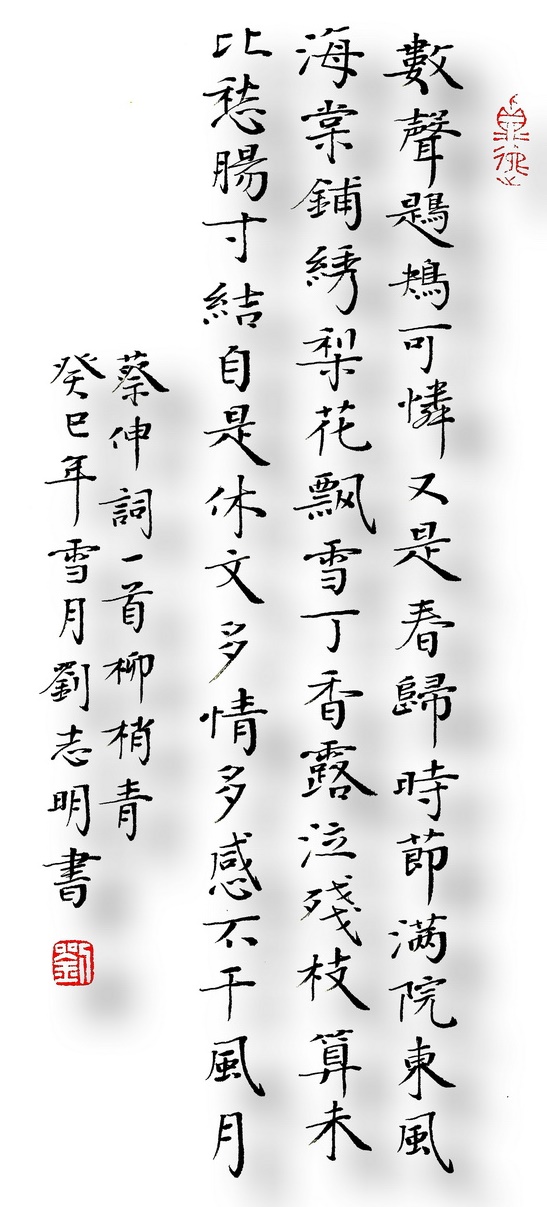 數聲鶗鴂可憐又是春歸時節满院東風
海棠鋪綉梨花飄雪丁香露泣殘枝算未
比愁腸寸結自是休文多情多感不干風月
蔡伸詞一首柳梢青
癸巳年雪月劉志明書
劉